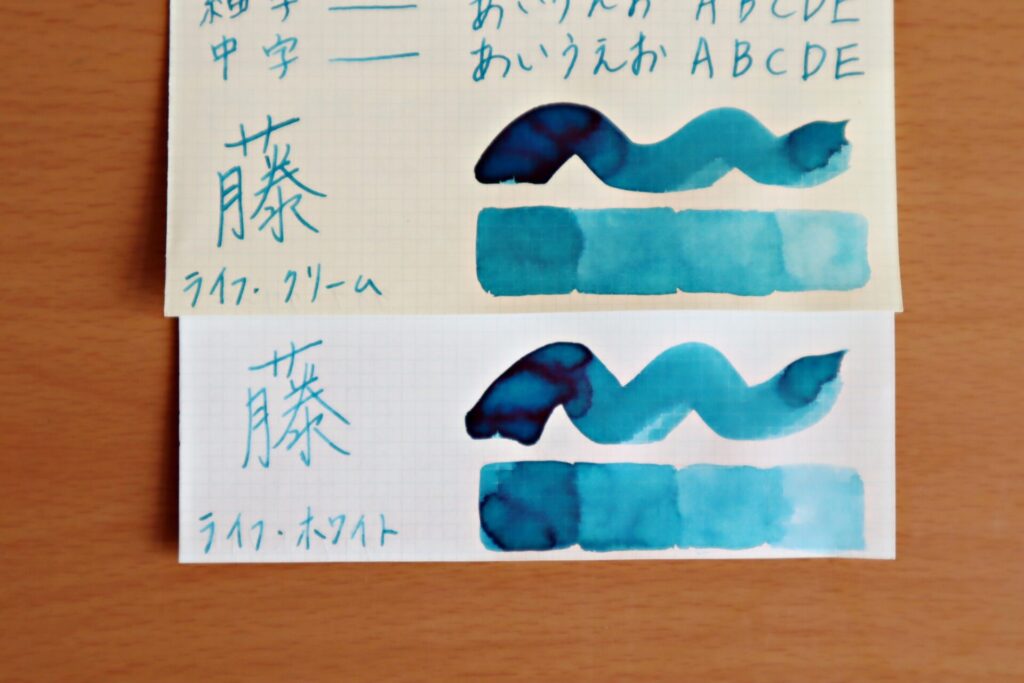 細字 あいうえお ABCDE
中字 あいうえお ABCDE
藤
ライフ・クリーム
藤
ライフ・ホワイト